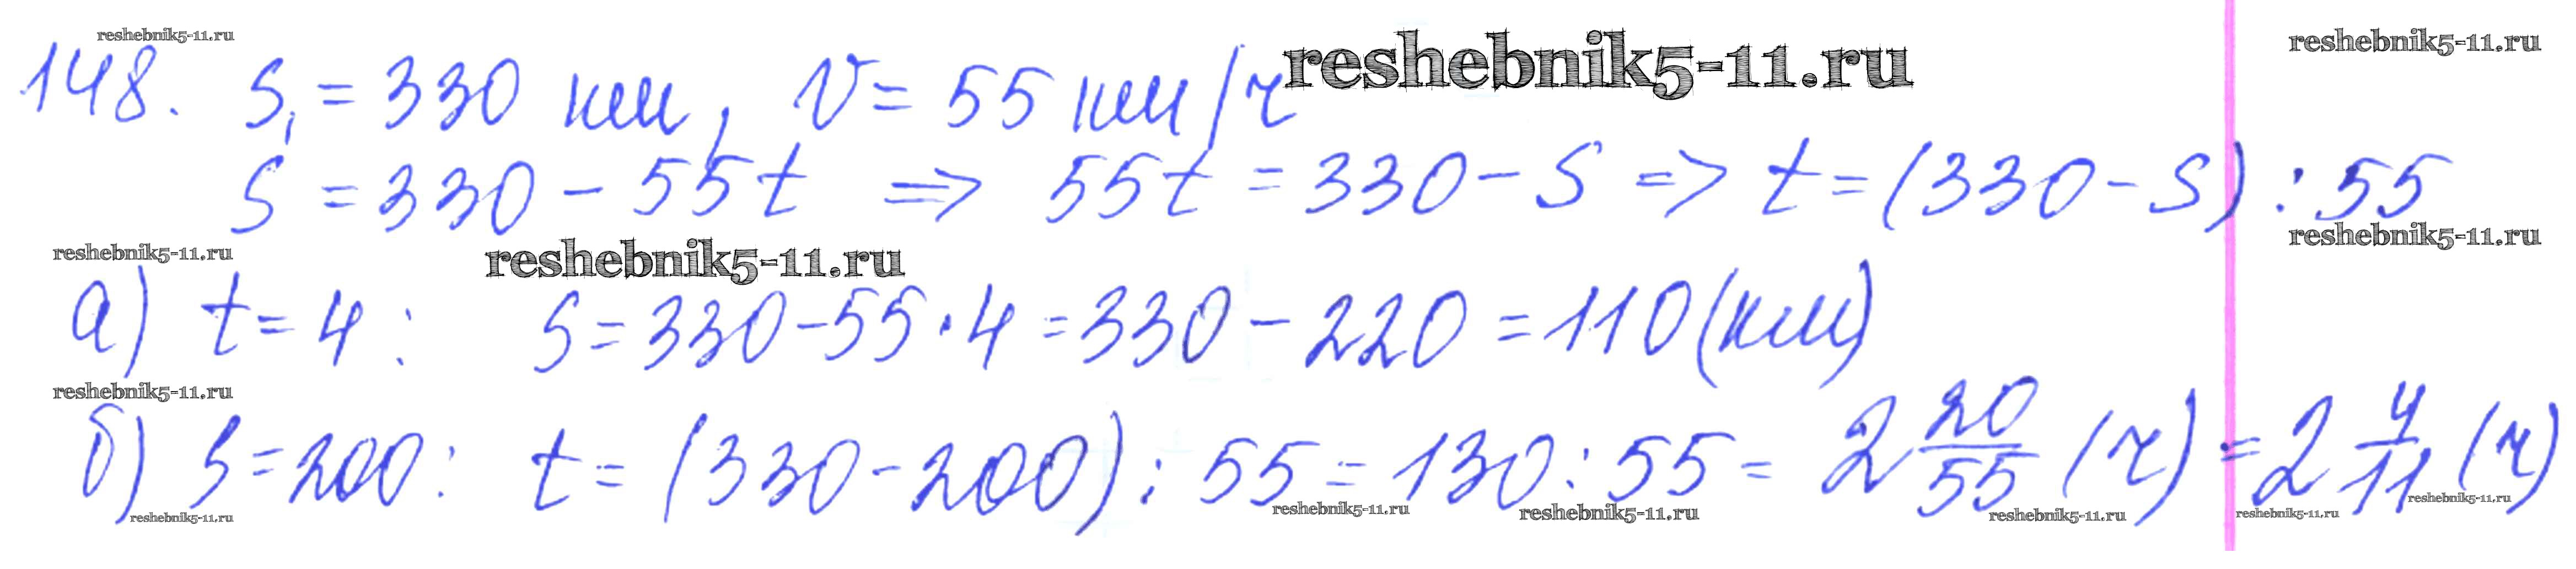 reshebnik5-11.ru
148. S₁ = 330 км, V = 55 км/ч reshebnik5-11.ru reshebnik5-11.ru
S = 330 - 55t => 55t = 330 - S => t = (330 - S) : 55
reshebnik5-11.ru reshebnik5-11.ru reshebnik5-11.ru
а) t = 4 : S = 330 - 55 · 4 = 330 - 220 = 110 (км)
reshebnik5-11.ru
б) S = 200 : t = (330 - 200) : 55 = 130 : 55 = 2 20/55 (ч) = 2 4/11 (ч)
reshebnik5-11.ru reshebnik5-11.ru reshebnik5-11.ru reshebnik5-11.ru reshebnik5-11.ru reshebnik5-11.ru